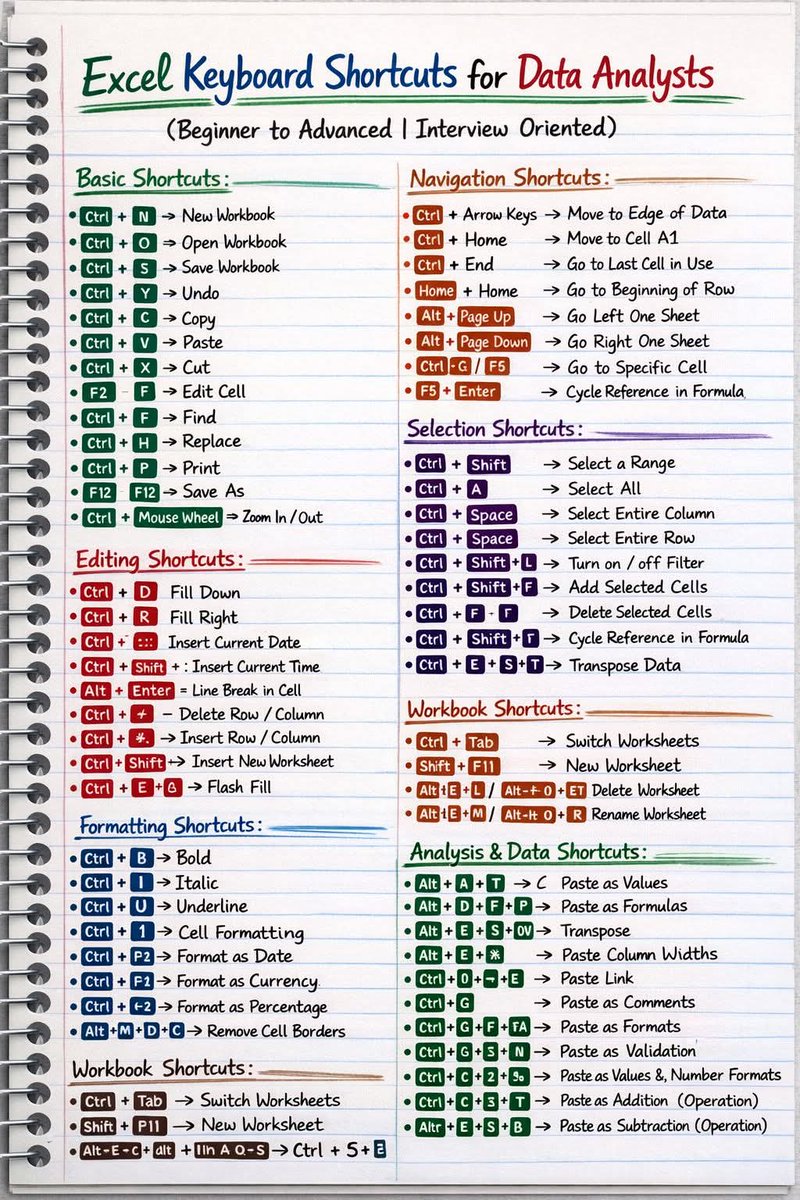 Excel Keyboard Shortcuts for Data Analysts
(Beginner to Advanced | Interview Oriented)
Basic Shortcuts:
• Ctrl + N → New Workbook
• Ctrl + O → Open Workbook
• Ctrl + S → Save Workbook
• Ctrl + Y → Undo
• Ctrl + C → Copy
• Ctrl + V → Paste
• Ctrl + X → Cut
• F2 - F → Edit Cell
• Ctrl + F → Find
• Ctrl + H → Replace
• Ctrl + P → Print
• F12 F12 → Save As
• Ctrl + Mouse Wheel ⇒ Zoom In / Out
Editing Shortcuts:
• Ctrl + D Fill Down
• Ctrl + R Fill Right
• Ctrl + Insert Current Date
• Ctrl + Shift + : Insert Current Time
• Alt + Enter = Line Break in Cell
• Ctrl + – Delete Row / Column
• Ctrl + → Insert Row / Column
• Ctrl + Shift +→ Insert New Worksheet
• Ctrl + E + → Flash Fill
Formatting Shortcuts:
• Ctrl + B → Bold
• Ctrl + I → Italic
• Ctrl + U → Underline
• Ctrl + 1 → Cell Formatting
• Ctrl + P2 → Format as Date
• Ctrl + F1 → Format as Currency.
• Ctrl + → Format as Percentage
• Alt + M + D + C → Remove Cell Borders
Workbook Shortcuts:
• Ctrl + Tab → Switch Worksheets
• Shift + P11 → New Worksheet
• Alt-E-C + alt + → Ctrl + S +
Navigation Shortcuts:
• Ctrl + Arrow Keys → Move to Edge of Data
• Ctrl + Home → Move to Cell A1
• Ctrl + End → Go to Last Cell in Use
• Home + Home → Go to Beginning of Row
• Alt + Page Up → Go Left One Sheet
• Alt + Page Down → Go Right One Sheet
• Ctrl -G / F5 → Go to Specific Cell
• F5 + Enter → Cycle Reference in Formula
Selection Shortcuts:
• Ctrl + Shift → Select a Range
• Ctrl + A → Select All
• Ctrl + Space → Select Entire Column
• Ctrl + Space → Select Entire Row
• Ctrl + Shift + L → Turn on / off Filter
• Ctrl + Shift + F → Add Selected Cells
• Ctrl + F → Delete Selected Cells
• Ctrl + Shift + → Cycle Reference in Formula
• Ctrl + E + S + T → Transpose Data
Workbook Shortcuts:
• Ctrl + Tab → Switch Worksheets
• Shift + F11 → New Worksheet
• Alt + E + L / + ET Delete Worksheet
• Alt + E + M / + R Rename Worksheet
Analysis & Data Shortcuts:
• Alt + A + T → C Paste as Values
• Alt + D + F + P → Paste as Formulas
• Alt + E + S + OV → Transpose
• Alt + E + → Paste Column Widths
• Ctrl + O + + E → Paste Link
• Ctrl + G → Paste as Comments
• Ctrl + G + F + → Paste as Formats
• Ctrl + G + S + N → Paste as Validation
• Ctrl + C + 2 + → Paste as Values &, Number Formats
• Ctrl + C + 3 + T → Paste as Addition (Operation)
• Altr + E + S + B → Paste as Subtraction (Operation)